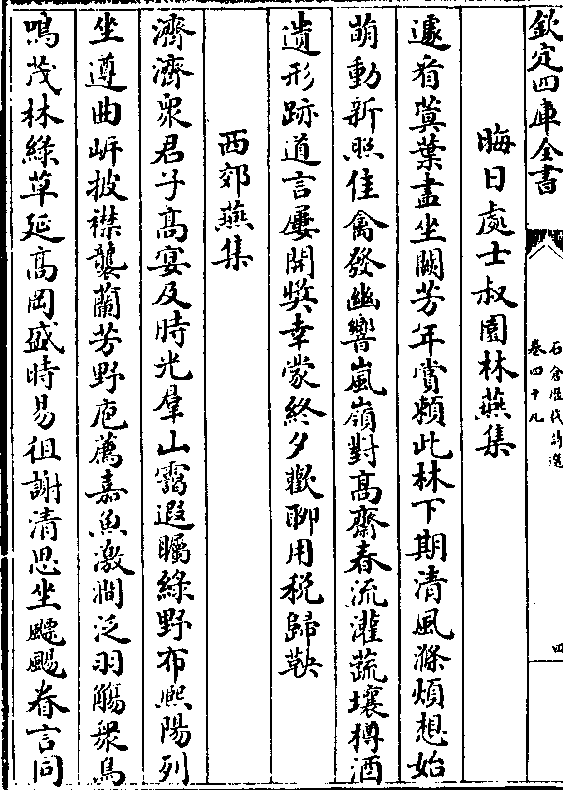 欽定四庫全書
石倉歷代詩選
卷四十九
四
晦日處士叔園林燕集
遽看蓂葉盡坐闕芳年賞賴此林下期清風滌煩想始
萌動新煦佳禽發幽響嵐嶺對高齋春流灌蔬壤樽酒
遺形跡道言屢開奬幸蒙終夕歡聊用稅歸鞅
西郊燕集
濟濟衆君子高宴及時光羣山靄遐矚綠野布熙陽列
坐遵曲岸披襟襲蘭芳野庖薦嘉魚激澗泛羽觴衆鳥
鳴茂林綠草延高岡盛時易徂謝清思坐飄颺眷言同